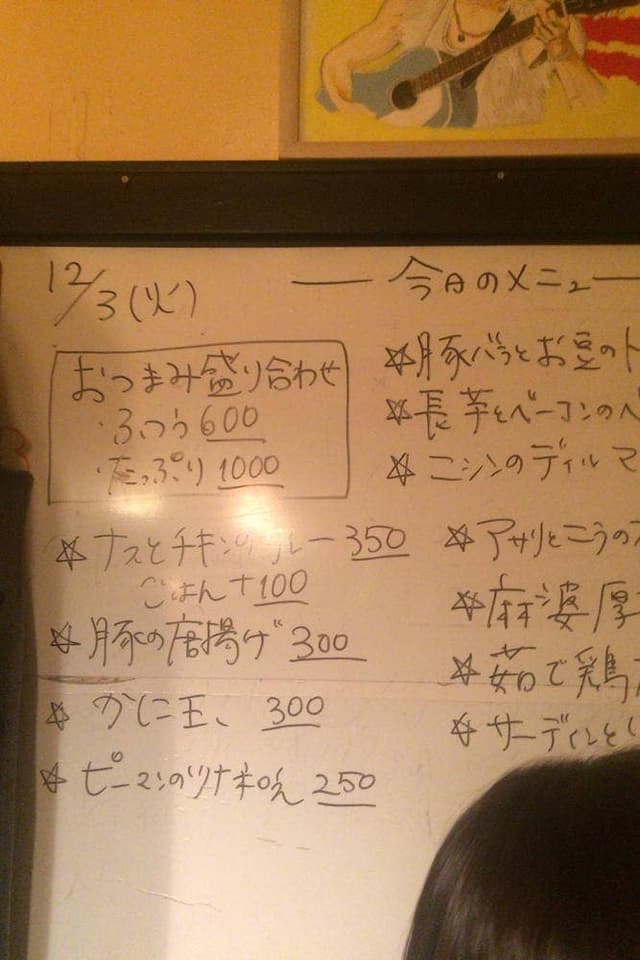 12/3(火)
今日のメニュ
おつまみ盛り合わせ
・ふつう 600
・たっぷり 1000
☆ナスとチキンのカレー 350
ごはん+100
☆豚の唐揚げ 300
☆かに玉、 300
☆ピーマンのツナ和え 250
☆豚バラとお豆のト
☆長芋とベーコンのペ
☆ニシンのディルマ
☆アサリとニラの
☆麻婆厚
☆茹で鶏
☆サーディンと